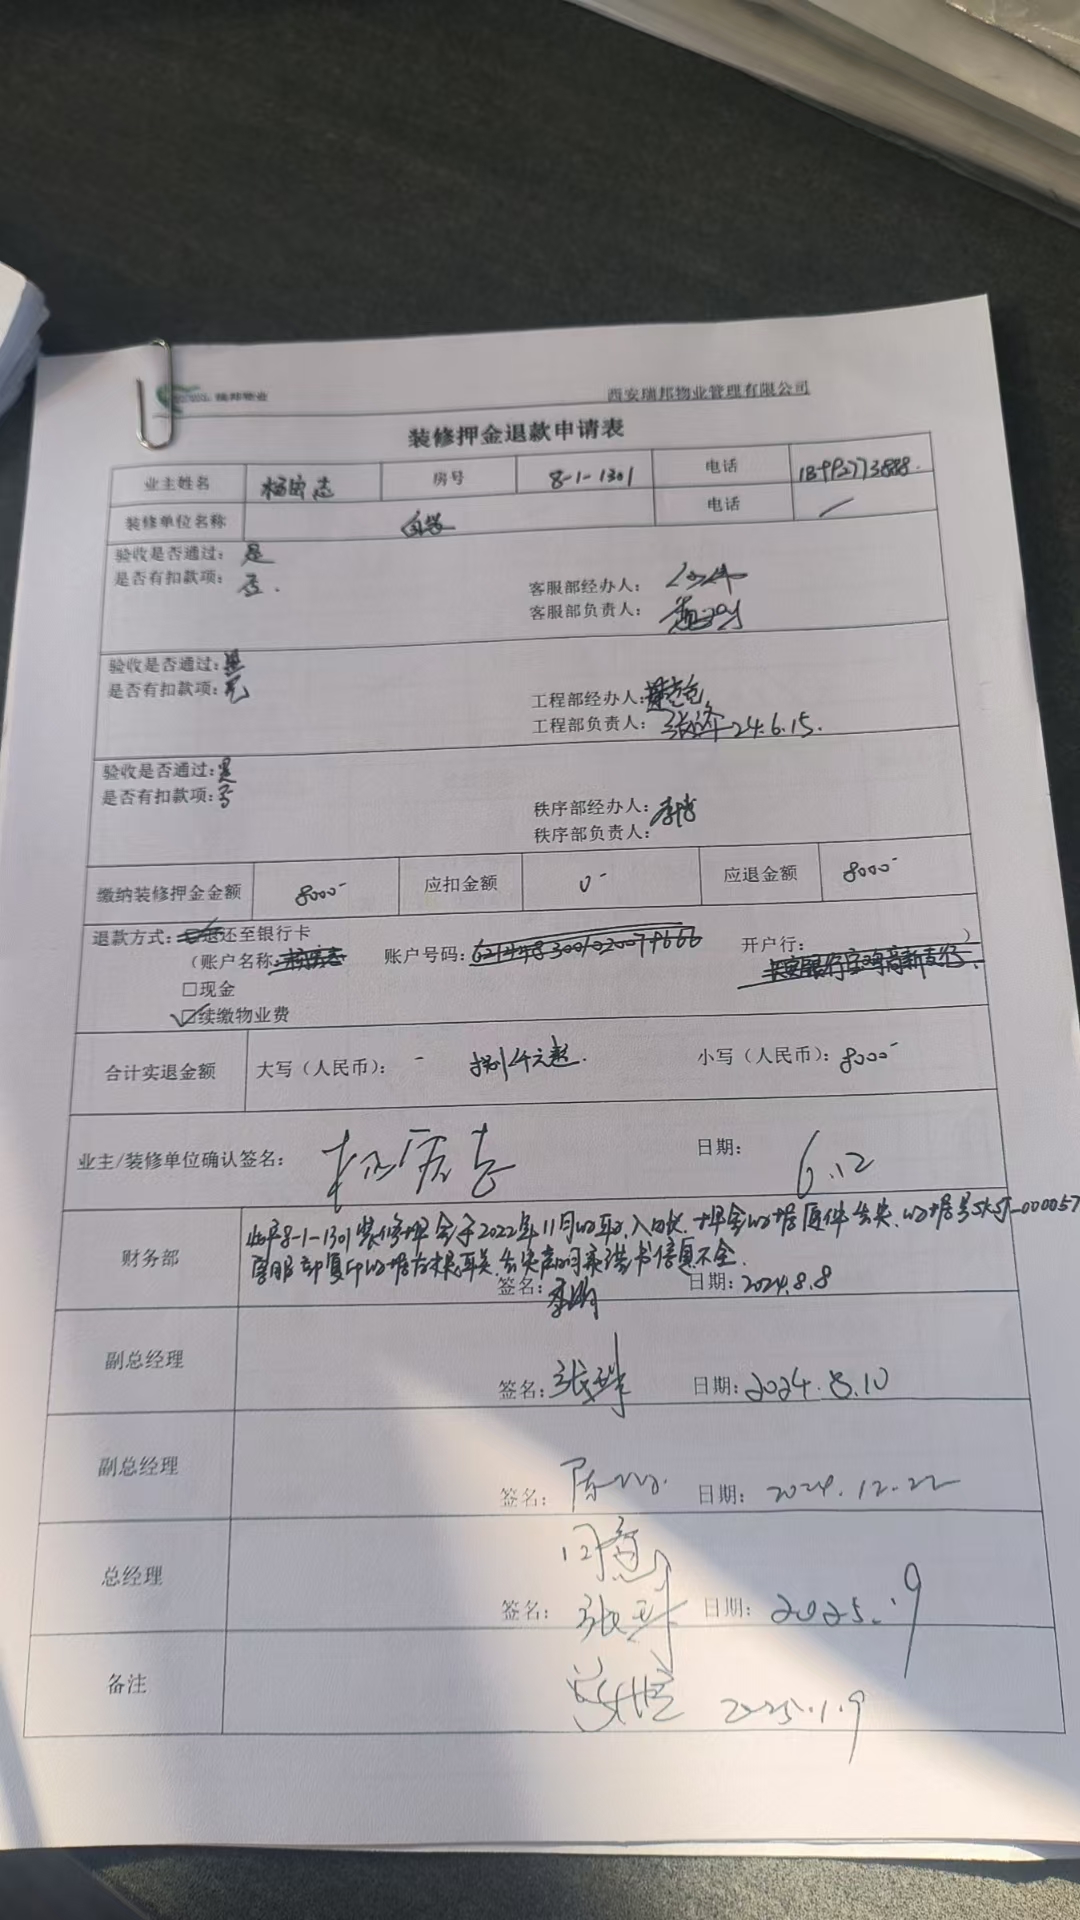 瑞邦物业 西安瑞邦物业管理有限公司
装修押金退款申请表
业主姓名 杨宏志 房号 8-1-1301 电话 18992773888.
装修单位名称 自装 电话 /
验收是否通过: 是
是否有扣款项: 否.
客服部经办人:
客服部负责人:
验收是否通过: 是
是否有扣款项: 无
工程部经办人:
工程部负责人: 24.6.15.
验收是否通过: 是
是否有扣款项: 否
秩序部经办人: 李博
秩序部负责人:
缴纳装修押金金额 8000- 应扣金额 0- 应退金额 8000-
退款方式: 退还至银行卡
(账户名称: 账户号码: 开户行: )
□现金
☑续缴物业费
合计实退金额 大写(人民币): - 捌仟元整. 小写(人民币): 8000-
业主/装修单位确认签名: 杨宏志 日期: 6.12
财务部 此户8-1-1301装修押金于2022年11月收取,入四状,押金收据原件丢失,收据号SKSJ-0000057
客服部复印收据存根联,丢失声明承诺书信息不全.
签名: 李 日期: 2024.8.8
副总经理 签名: 张 日期: 2024.8.10
副总经理 签名: 陈 日期: 2024.12.22
总经理 同意
签名: 张 日期: 2025.1.9
备注 2025.1.9